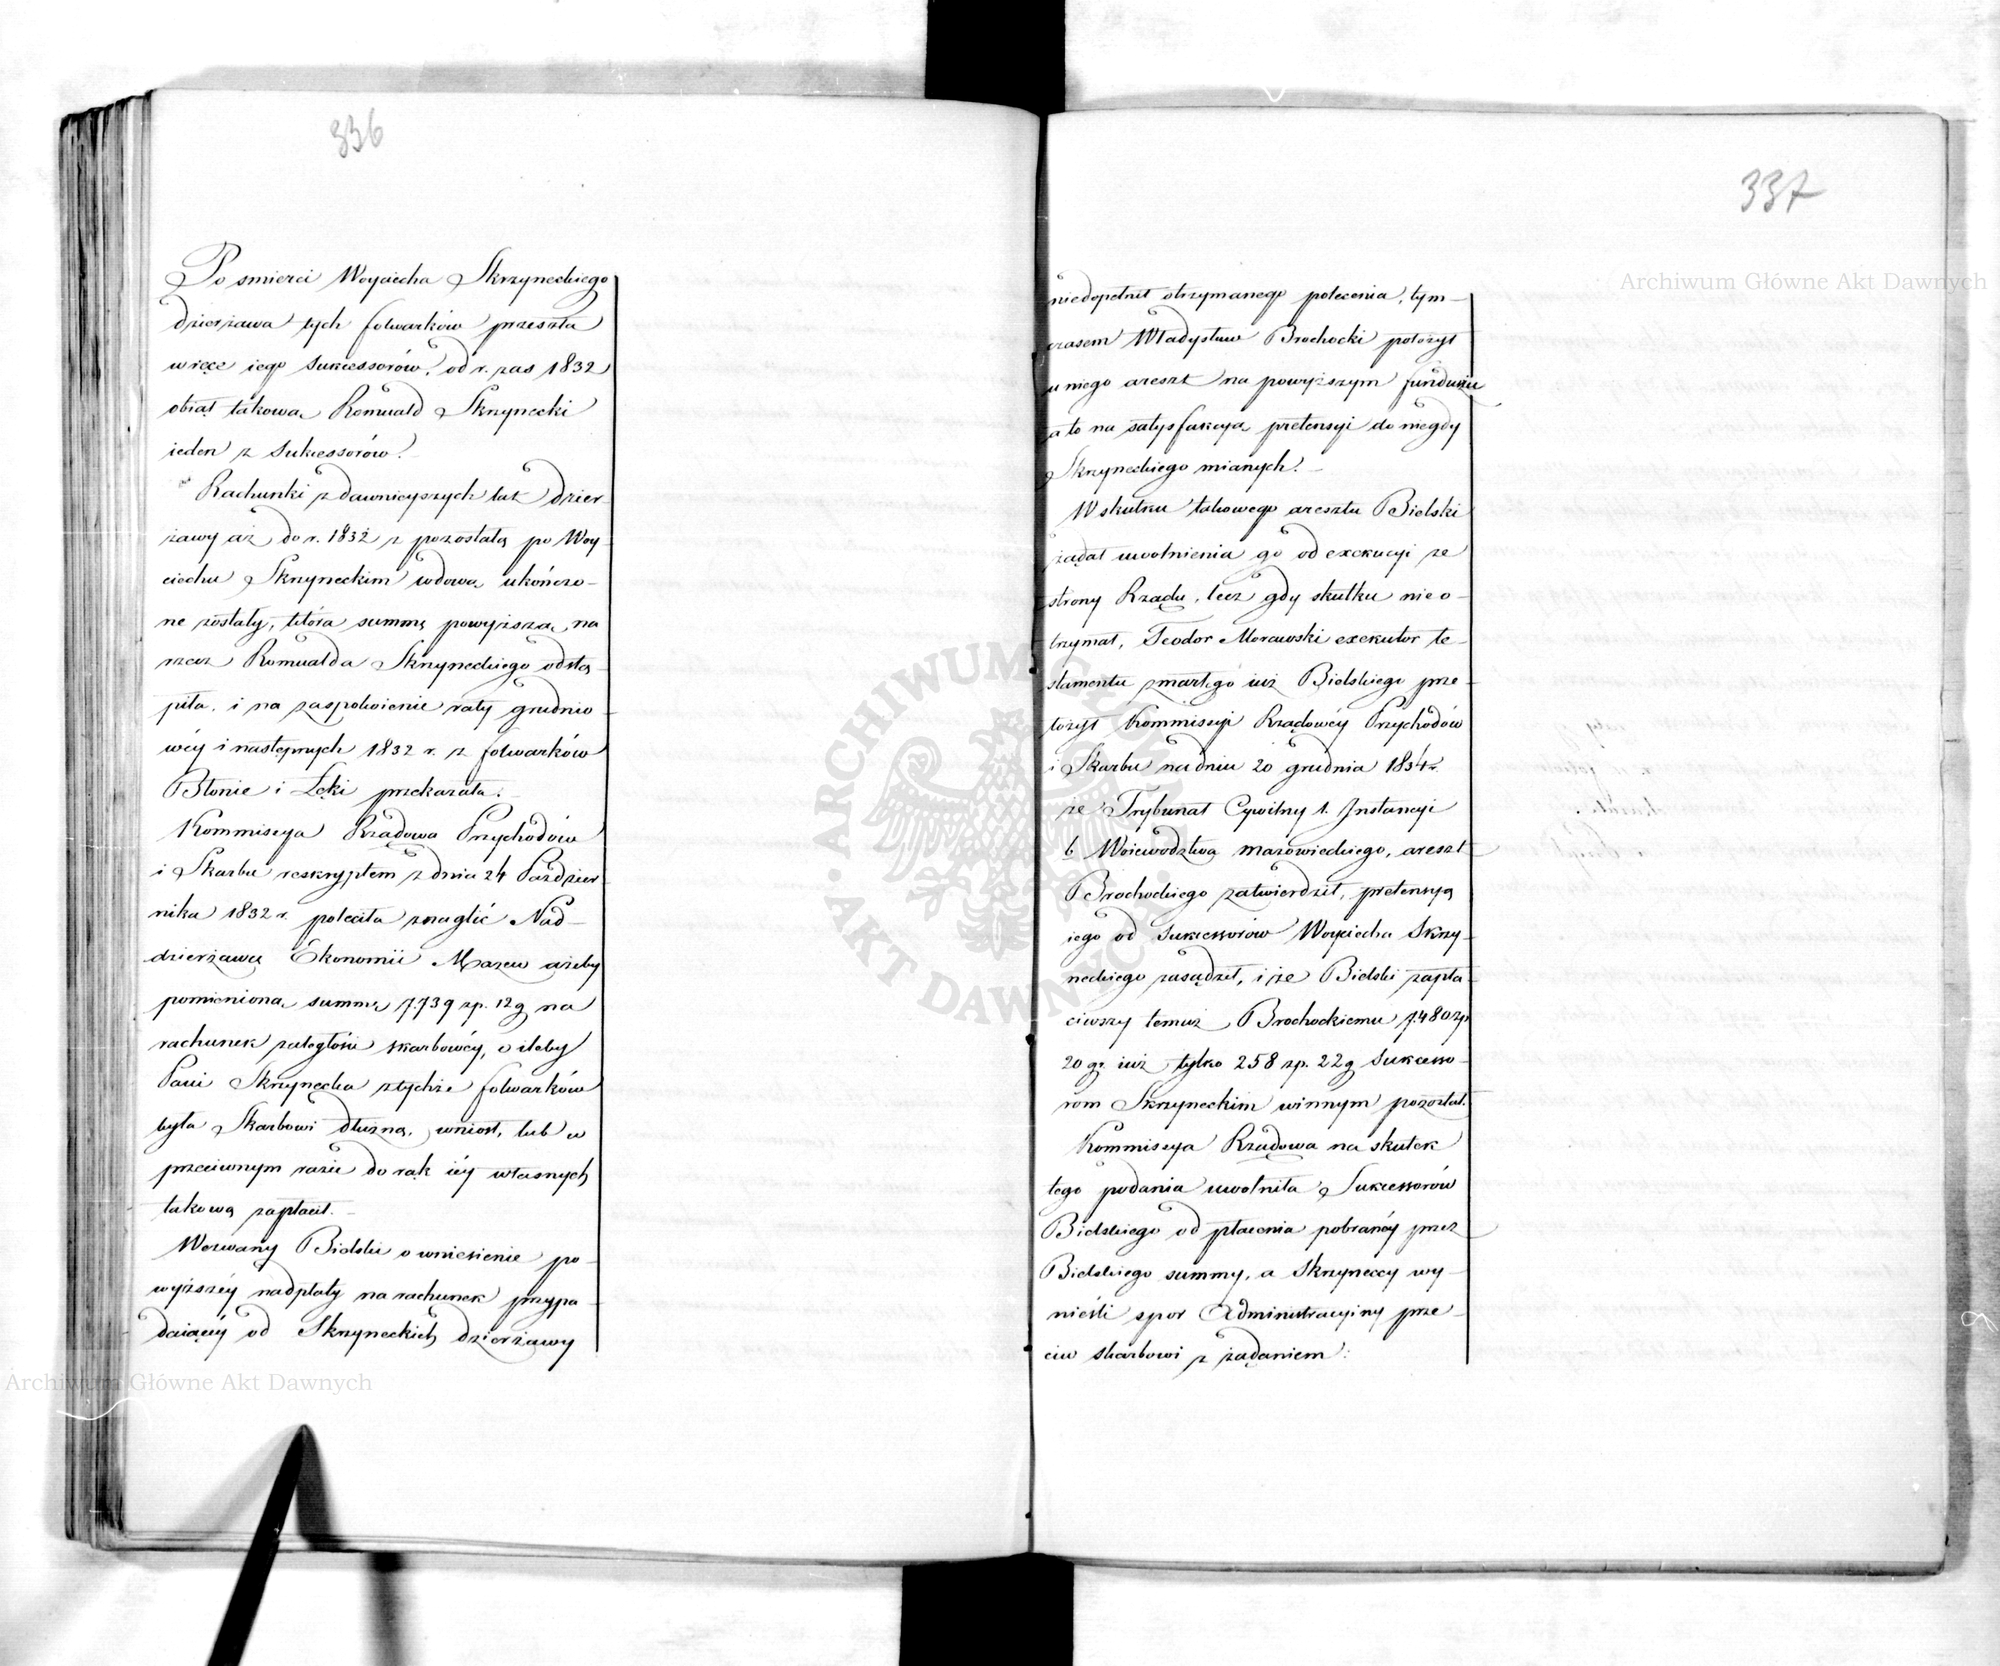 336
Po smierci Woyciecha Skrzyneckiego
dzierżawa tych folwarków przeszła
w ręce iego Sukcessorów, od r. zas 1832
obiął takową Romuald Skrzynecki
ieden z Sukcessorów.
Rachunki z dawnieyszych lat dzier-
żawy aż do r. 1832 z pozostałą po Woy-
ciechu Skrzyneckim wdową ukończo-
ne zostały, która summę powyższą na
rzecz Romualda Skrzyneckiego odstą-
piła, i na zaspokoienie raty grudnio-
wéy i następnych 1832 r. z folwarków
Błonie i Łęki przekazała.
Kommissya Rządowa Przychodów
i Skarbu reskryptem z dnia 24 Paździer-
nika 1832 r. poleciła znaglić Nad-
dzierżawcę Ekonomii Mazew ażeby
pomienioną summę 7.739 zp. 12 g na
rachunek zaległości skarbowéy, o ileby
Pani Skrzynecka z tychże folwarków
była Skarbowi dłużną, wniósł, lub w
przeciwnym razie do rąk iéy własnych
takową zapłacił.
Wezwany Bielski o wniesienie po-
wyższéy nadpłaty na rachunek przypa-
daiącéy od Skrzyneckich dzierżawy
337
niedopełnił otrzymanego polecenia, tym-
czasem Władysław Brochocki położył
u niego areszt na powyższym funduszu
a to na satysfakcyą pretensyi do niegdy
Skrzyneckiego mianych.
W skutku takowego aresztu Bielski
żądał uwolnienia go od exekucyi ze
strony Rządu, lecz gdy skutku nie o-
trzymał, Teodor Morawski exekutor te-
stamentu zmarłego iuż Bielskiego prze-
łożył Kommissyi Rządowéy Przychodów
i Skarbu na dniu 20 grudnia 1834 r.
że Trybunał Cywilny 1. Instancyi
b. Woiewodztwa Mazowieckiego, areszt
Brochockiego zatwierdził, pretensyą
iego od Sukcessorów Woyciecha Skrzy-
neckiego zasądził, i że Bielski zapła-
ciwszy temuż Brochockiemu 7.480 zp
20 gr iuż tylko 258 zp. 22 g Sukcesso-
rom Skrzyneckim winnym pozostał.
Kommissya Rządowa na skutek
tego podania uwolniła Sukcessorów
Bielskiego od płacenia pobranéy przez
Bielskiego summy, a Skrzyneccy wy-
nieśli spor Administracyiny prze-
ciw skarbowi z żądaniem:
Archiwum Główne Akt Dawnych
Archiwum Główne Akt Dawnych
ARCHIWUM GŁÓWNE AKT DAWNYCH